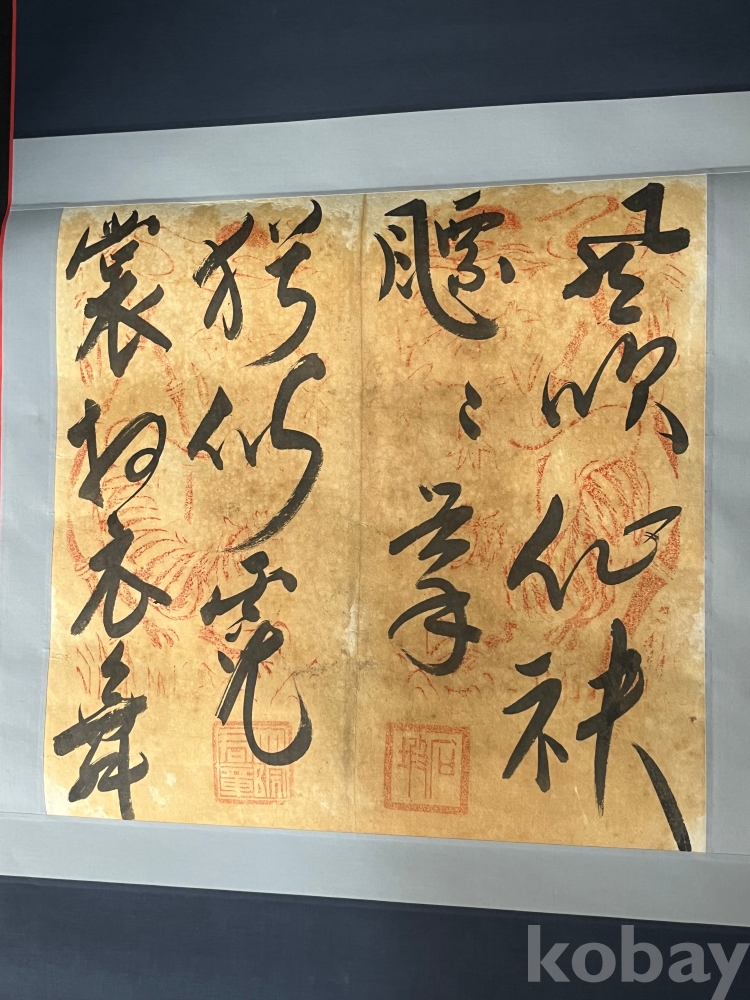 風吹仙袂
飄〻舉
猶似霓
裳羽衣舞
kobay